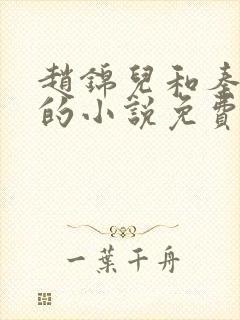 趙錦兒和秦
的小說免費
一葉千舟